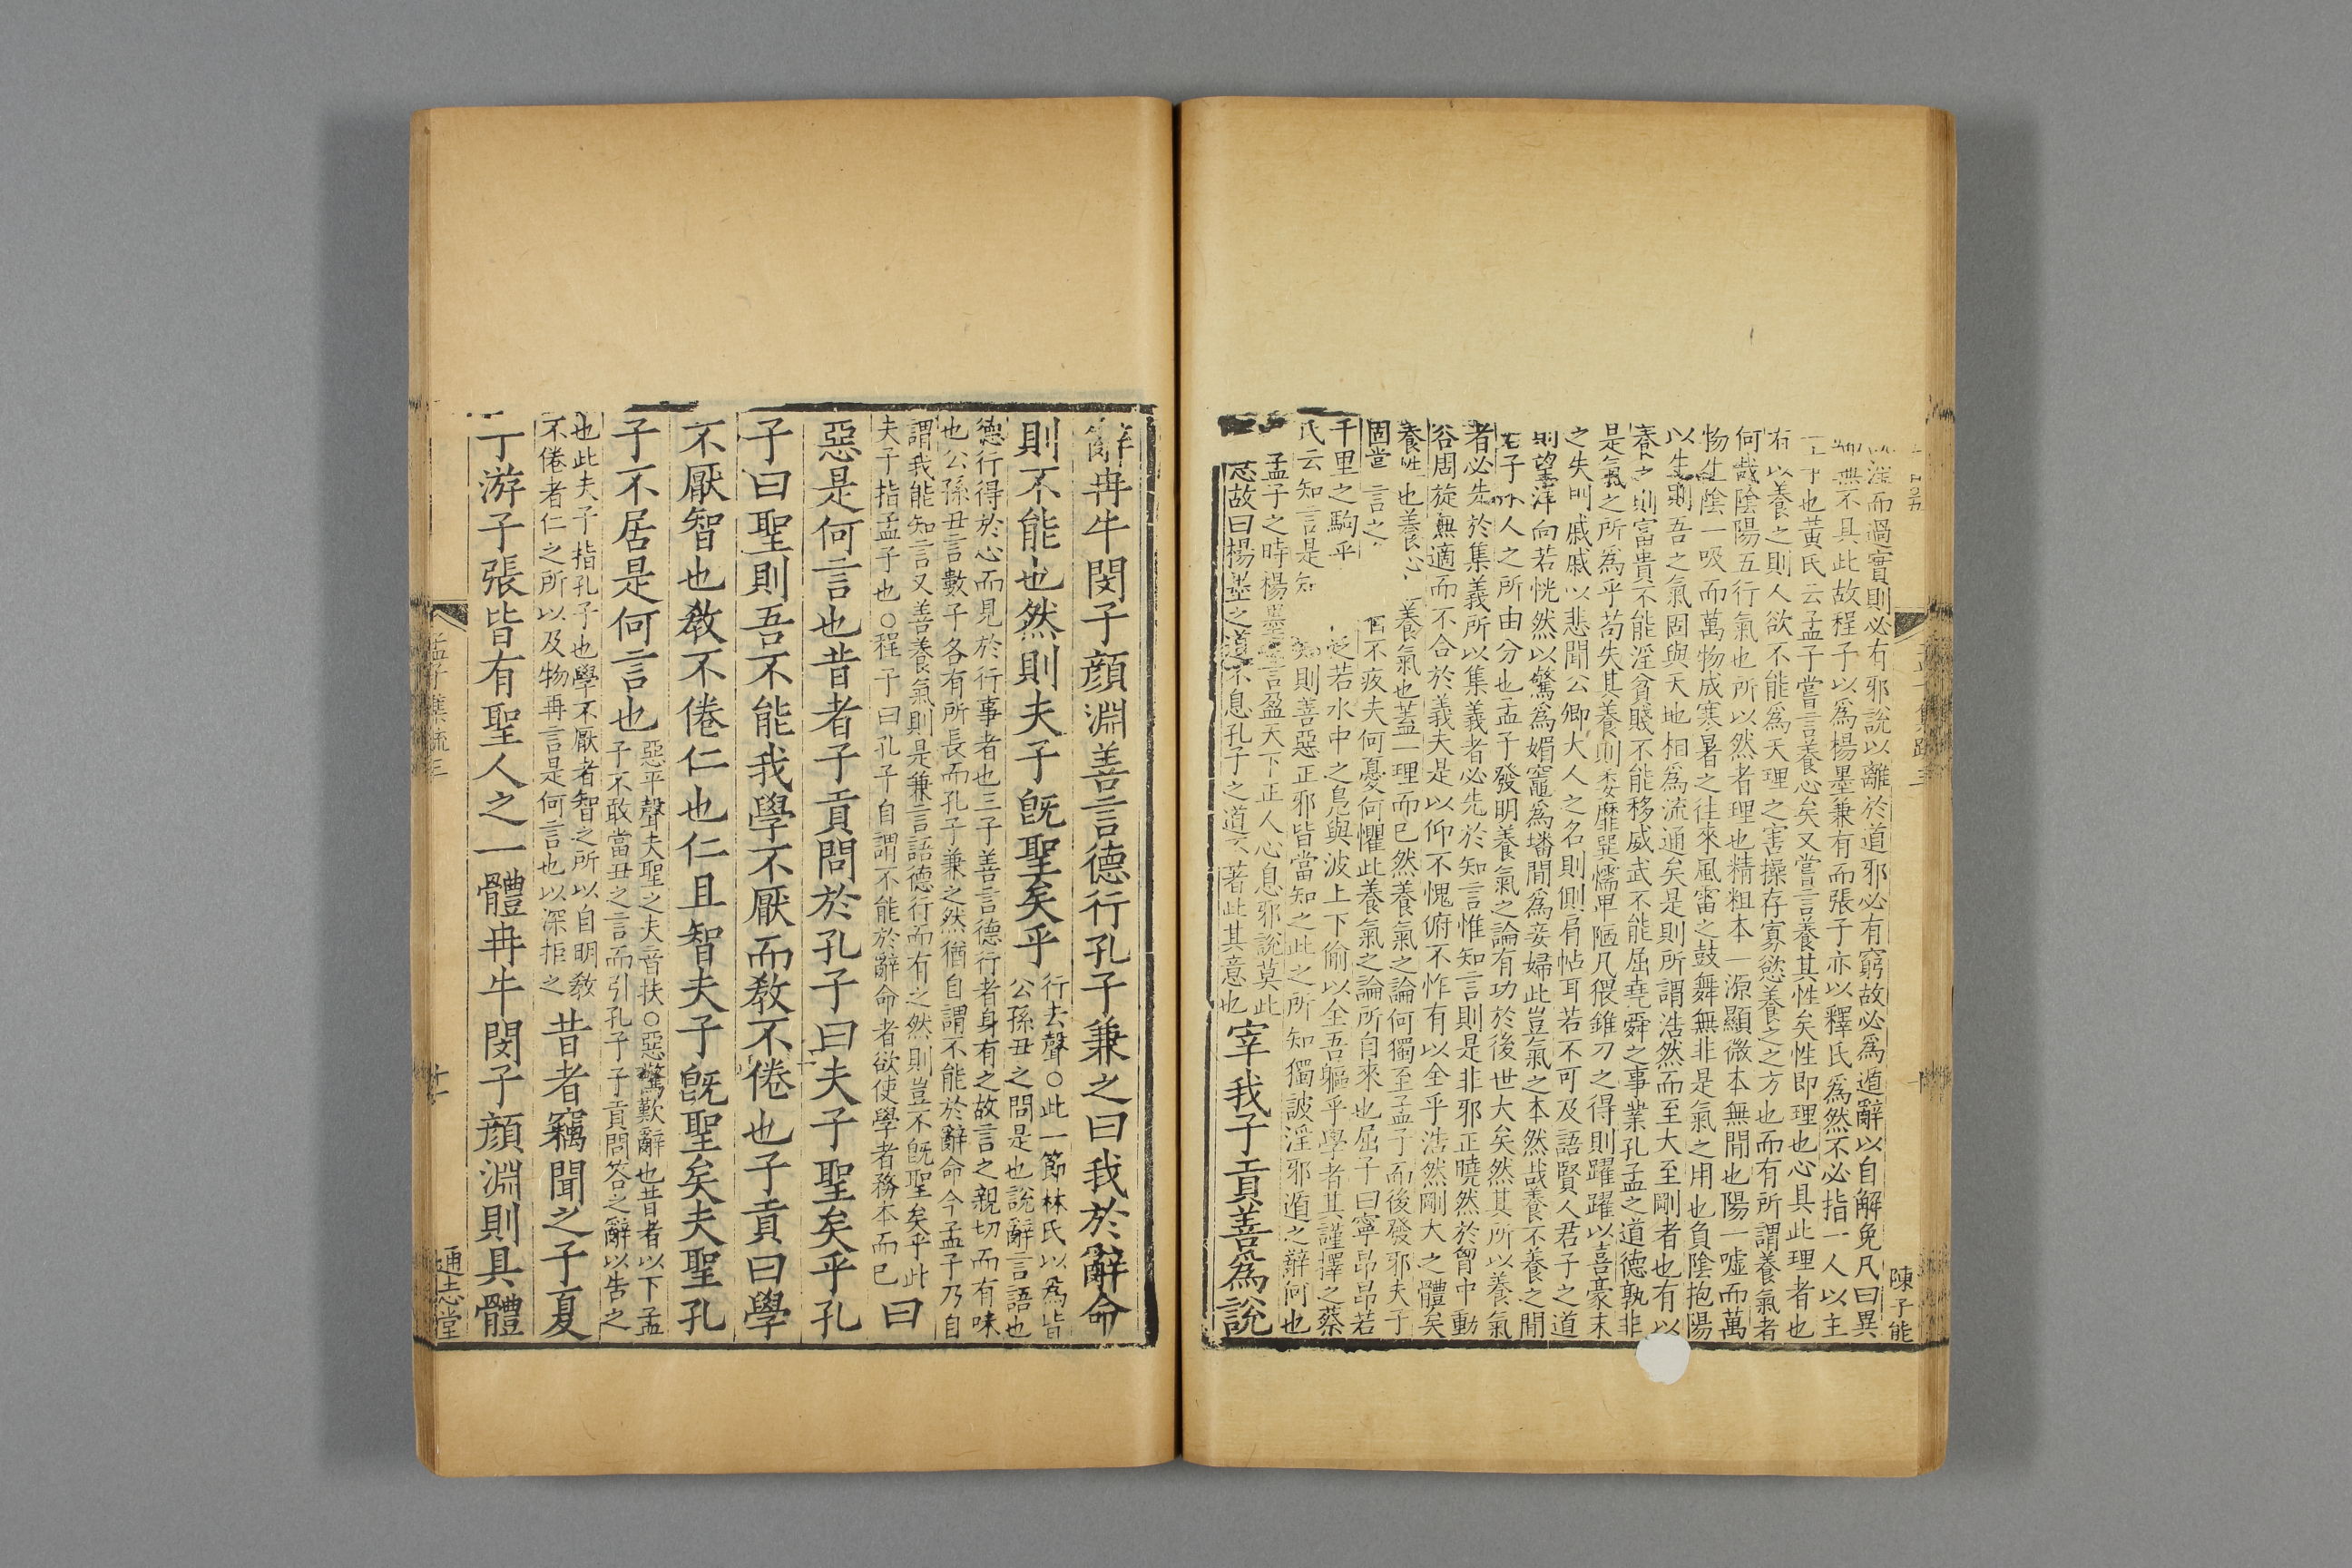 淫而過實則必有邪說以離於道邪必有窮故必爲遁辭以自解免凡曰異
無不具此故程子以爲楊墨兼有而張子亦以釋氏爲然不必指一人以主
也黃氏云孟子嘗言養心矣又嘗言養其性矣性即理也心具此理者也
以養之則人欲不能爲天理之害操存寡慾養之之方也而有所謂養氣者
何哉陰陽五行氣也所以然者理也精粗本一源顯微本無間也陽一噓而萬
物生陰一吸而萬物成寒暑之往來風雷之鼓舞無非是氣之用也負陰抱陽
以生則吾之氣固與天地相爲流通矣是則所謂浩然而至大至剛者也有以
養之則富貴不能淫貧賤不能移威武不能屈堯舜之事業孔孟之道德孰非
是氣之所爲乎苟失其養則委靡巽懦卑陋凡猥錐刀之得則躍躍以喜豪末
之失則戚戚以悲聞公卿大人之名則側肩帖耳若不可及語賢人君子之道
則望洋向若恍然以驚爲媚竈爲墦間爲妾婦此豈氣之本然哉養不養之間
子小人之所由分也孟子發明養氣之論有功於後世大矣然其所以養氣
者必先於集義所以集義者必先於知言惟知言則是非邪正曉然於胷中動
容周旋無適而不合於義夫是以仰不愧俯不怍有以全乎浩然剛大之體矣
養性也養心養氣也蓋一理而已然養氣之論何獨至孟子而後發邪夫子
固嘗言之不疚夫何憂何懼此養氣之論所自來也屈子曰寧昂昂若
千里之駒乎泛若水中之鳧與波上下偷以全吾軀乎學者其謹擇之蔡
氏云知言是知則善惡正邪皆當知之此之所知獨詖淫邪遁之辭何也
孟子之時楊墨之言盈天下正人心息邪說莫此
急故曰楊墨之道不息孔子之道不著此其意也
宰我子貢善爲說
陳子能
辭冉牛閔子顏淵善言德行孔子兼之曰我於辭命
則不能也然則夫子旣聖矣乎
行去聲○此一節林氏以爲皆
公孫丑之問是也說辭言語也
德行得於心而見於行事者也三子善言德行者身有之故言之親切而有味
也公孫丑言數子各有所長而孔子兼之然猶自謂不能於辭命今孟子乃自
謂我能知言又善養氣則是兼言語德行而有之然則豈不旣聖矣乎此
夫子指孟子也○程子曰孔子自謂不能於辭命者欲使學者務本而已
曰
惡是何言也昔者子貢問於孔子曰夫子聖矣乎孔
子曰聖則吾不能我學不厭而敎不倦也子貢曰學
不厭智也敎不倦仁也仁且智夫子旣聖矣夫聖孔
子不居是何言也
惡平聲夫聖之夫音扶○惡驚歎辭也昔者以下孟
子不敢當丑之言而引孔子子貢問答之辭以告之
也此夫子指孔子也學不厭者智之所以自明敎
不倦者仁之所以及物再言是何言也以深拒之
昔者竊聞之子夏
子游子張皆有聖人之一體冉牛閔子顏淵則具體
孟子集疏三
十一
通志堂